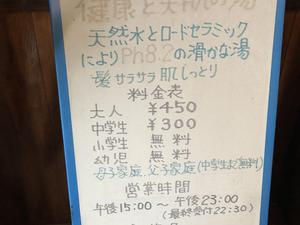 健康と美肌の湯
天然水とロードセラミック
によりPh8.2の滑かな湯
髪サラサラ 肌しっとり
料金表
大人 ¥450
中学生 ¥300
小学生 無料
幼児 無料
母子家庭、父子家庭(中学生まで無料)
営業時間
午後15:00 ～ 午後23:00
(最終受付22:30)